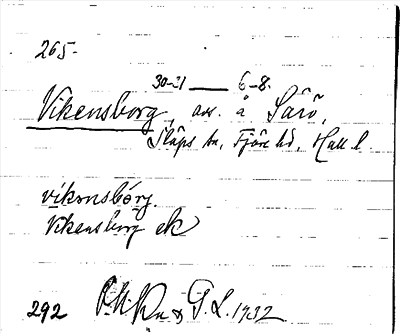 265.
30-21 — 6-8.
Vikensborg, avs. å Särö,
Släps sn, Fjäre hd, Hall l.
vikonsbórg.
Vikensborg ek
292 G. L. 1932